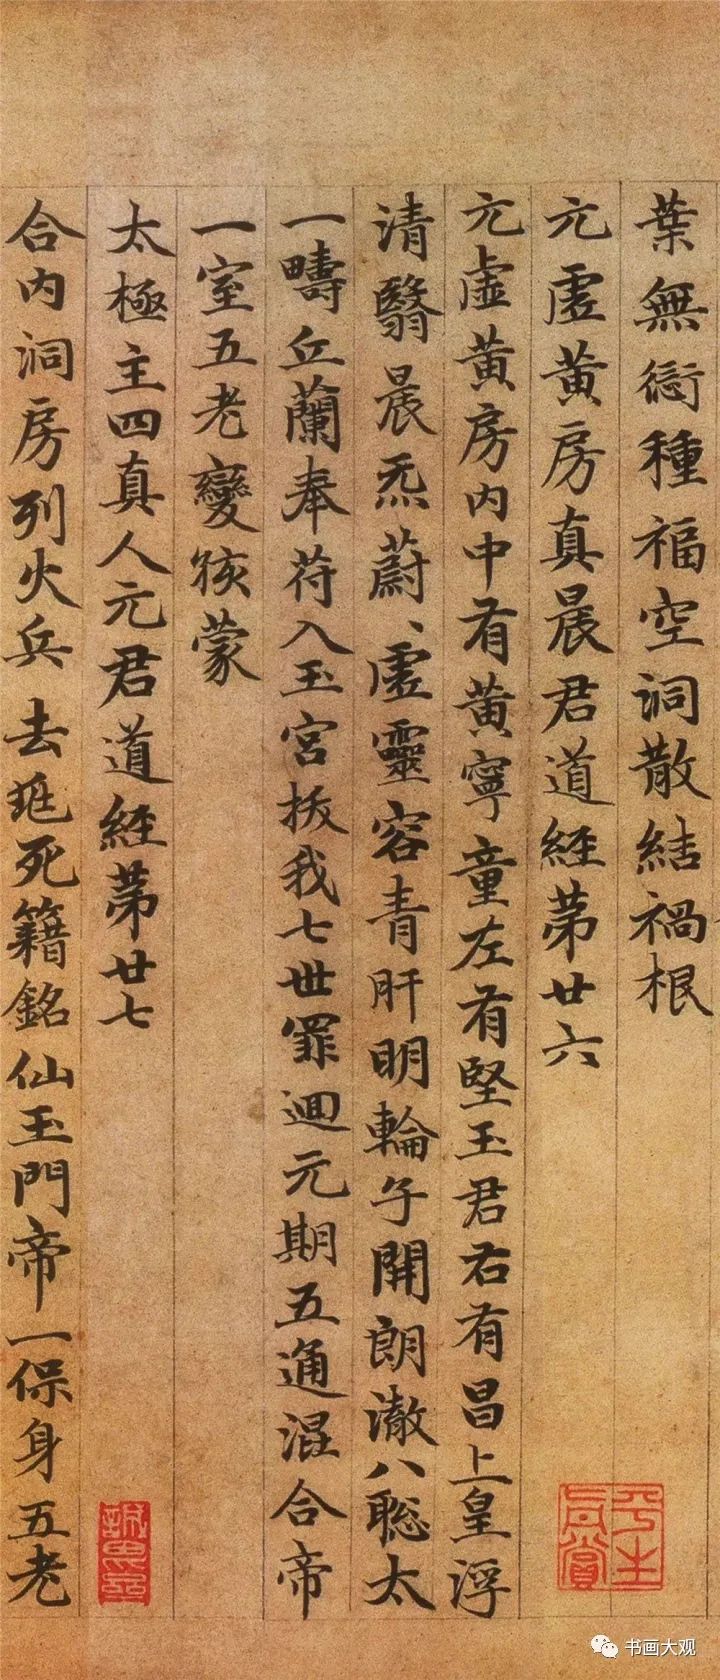 葉無愆種福空洞散結禍根
元虛黃房真晨君道經苐廿六
元虛黃房内中有黃寧童左有堅玉君右有昌上皇浮
清翳晨炁蔚、虛靈容青肝明輪子開朗澈八聡太
一疇丘蘭奉苻入玉宮拔我七世罪迴元期五通混合帝
一室五老變孩蒙
太極主四真人元君道經苐廿七
合内洞房列火兵去死籍銘仙玉門帝一保身五老
平生真賞
书画大观